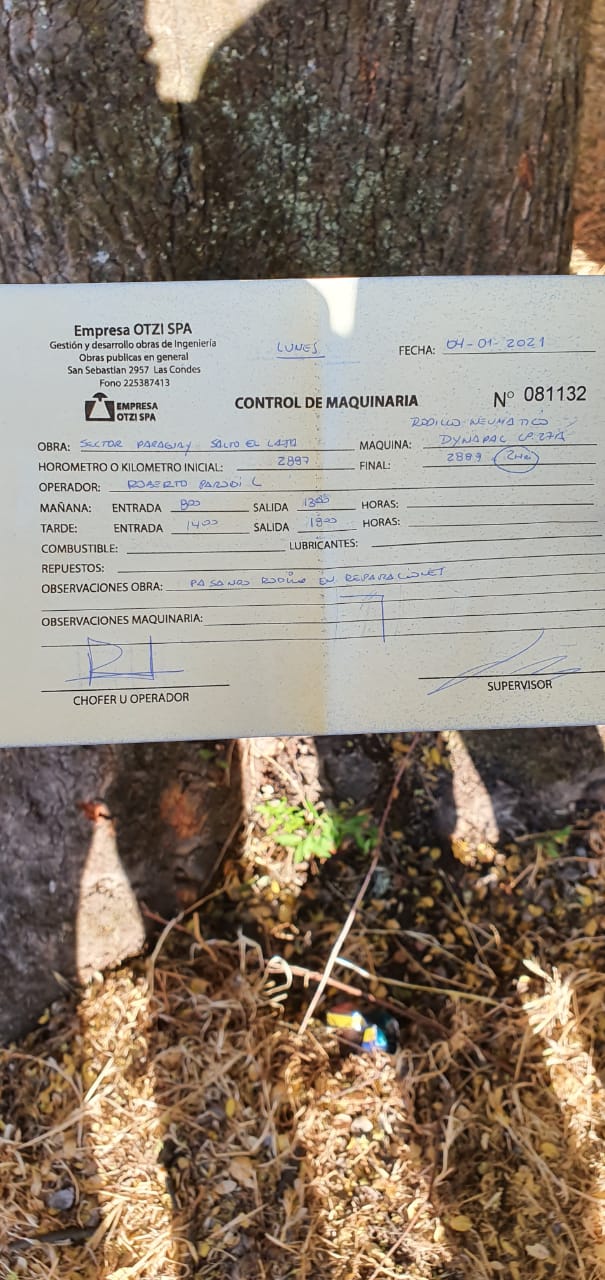 Empresa OTZI SPA
Gestión y desarrollo obras de Ingeniería
Obras publicas en general
San Sebastian 2957 Las Condes
Fono 225387413
EMPRESA
OTZI SPA
LUNES
FECHA: 04-01-2021
CONTROL DE MAQUINARIA
N° 081132
OBRA: SECTOR PARAGUAY SALTO EL LAJA
MAQUINA: RODILLO NEUMATICO
DYNAPAC CP.27A
HOROMETRO O KILOMETRO INICIAL: 2887
FINAL: 2889 2HRS
OPERADOR: ROBERTO PARODI C
MAÑANA: ENTRADA 800 SALIDA 1300 HORAS:
TARDE: ENTRADA 1400 SALIDA 1800 HORAS:
COMBUSTIBLE: LUBRICANTES:
REPUESTOS:
OBSERVACIONES OBRA: PASANDO RODILLO EN REPARACIONES
OBSERVACIONES MAQUINARIA:
CHOFER U OPERADOR
SUPERVISOR